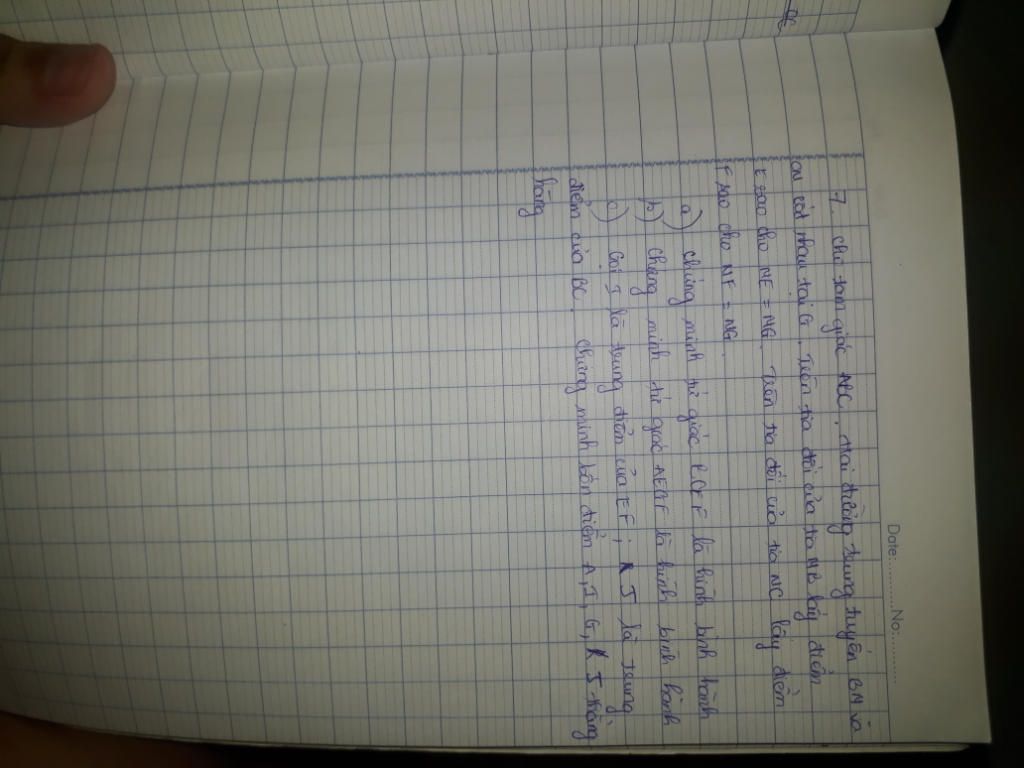 Date:.............No:.............
7. cho tam giác ABC, Hai đường trung tuyến BM và
CN cắt nhau tại G. Trên tia đối của tia MB lấy điểm
E sao cho ME = MG. Trên tia đối của tia NC lấy điểm
F sao cho NF = NG.
a) chứng minh tứ giác BCEF là hình bình hành
b) chứng minh tứ giác AEGF là hình bình hành
c) Gọi I là trung điểm của EF; J là trung
điểm của BC. chứng minh bốn điểm A, I, G, J thẳng
hàng